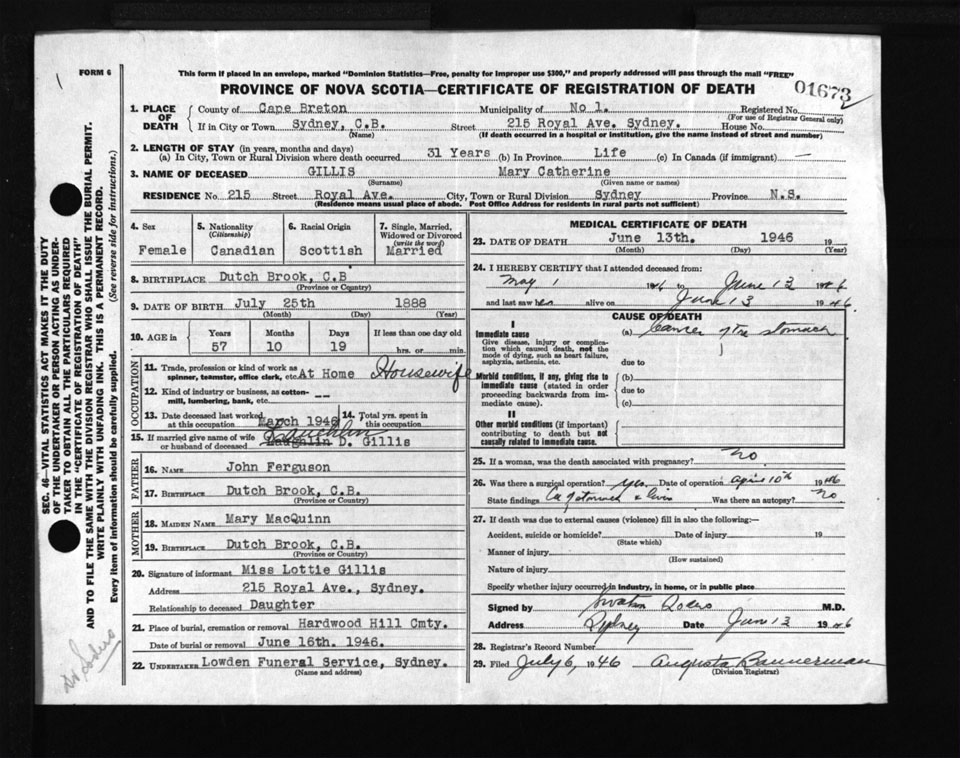 FORM 6
This form if placed in an envelope, marked "Dominion Statistics—Free, penalty for improper use $300," and properly addressed will pass through the mail "FREE"
PROVINCE OF NOVA SCOTIA—CERTIFICATE OF REGISTRATION OF DEATH
01673
1. PLACE OF DEATH
County of Cape Breton Municipality of No 1. Registered No.
(For use of Registrar General only)
If in City or Town Sydney, C.B. Street 215 Royal Ave. Sydney. House No.
(Name) (If death occurred in a hospital or institution, give the name instead of street and number)
2. LENGTH OF STAY (in years, months and days)
(a) In City, Town or Rural Division where death occurred 31 Years (b) In Province Life (c) In Canada (if immigrant) —
3. NAME OF DECEASED GILLIS Mary Catherine
(Surname) (Given name or names)
RESIDENCE No. 215 Street Royal Ave. City, Town or Rural Division Sydney Province N.S.
(Residence means usual place of abode. Post Office Address for residents in rural parts not sufficient)
4. Sex Female
5. Nationality (Citizenship) Canadian
6. Racial Origin Scottish
7. Single, Married, Widowed or Divorced (write the word) Married
8. BIRTHPLACE Dutch Brook, C.B
(Province or Country)
9. DATE OF BIRTH July 25th 1888
(Month) (Day) (Year)
10. AGE in Years 57 Months 10 Days 19 If less than one day old hrs. or min.
OCCUPATION
11. Trade, profession or kind of work as spinner, teamster, office clerk, etc. At Home Housewife
12. Kind of industry or business, as cotton-mill, lumbering, bank, etc. --
13. Date deceased last worked at this occupation March 1946
14. Total yrs. spent in this occupation
15. If married give name of wife or husband of deceased Lauchlin Laughlin D. Gillis
FATHER
16. NAME John Ferguson
17. BIRTHPLACE Dutch Brook, C.B.
(Province or Country)
MOTHER
18. MAIDEN NAME Mary MacQuinn
19. BIRTHPLACE Dutch Brook, C.B.
(Province or Country)
20. Signature of informant Miss Lottie Gillis
Address 215 Royal Ave., Sydney.
Relationship to deceased Daughter
21. Place of burial, cremation or removal Hardwood Hill Cmty.
Date of burial or removal June 16th. 1946.
22. UNDERTAKER Lowden Funeral Service, Sydney.
(Name and address)
MEDICAL CERTIFICATE OF DEATH
23. DATE OF DEATH June 13th. 1946 19
(Month) (Day) (Year)
24. I HEREBY CERTIFY that I attended deceased from:
May 1 1946 to June 13 1946
and last saw her alive on June 13 1946
CAUSE OF DEATH
I
Immediate cause
Give disease, injury or complication which caused death, not the mode of dying, such as heart failure, asphyxia, asthenia, etc.
(a) Cancer of the stomach
due to
Morbid conditions, if any, giving rise to immediate cause (stated in order proceeding backwards from immediate cause).
(b)
due to
(c)
II
Other morbid conditions (if important) contributing to death but not causally related to immediate cause.
25. If a woman, was the death associated with pregnancy? No
26. Was there a surgical operation? Yes. Date of operation April 10th 1946
State findings Ca of stomach & liver Was there an autopsy? No
27. If death was due to external causes (violence) fill in also the following:—
Accident, suicide or homicide? Date of injury 19
(State which)
Manner of injury
(How sustained)
Nature of injury
Specify whether injury occurred in industry, in home, or in public place
Signed by M.D.
Address Sydney Date June 13 1946
28. Registrar's Record Number
29. Filed July 6, 1946 Augusta Bannerman
(Division Registrar)
SEC. 46—VITAL STATISTICS ACT MAKES IT THE DUTY
OF THE UNDERTAKER OR PERSON ACTING AS UNDER-
TAKER TO OBTAIN ALL THE PARTICULARS REQUIRED
IN THE "CERTIFICATE OF REGISTRATION OF DEATH"
AND TO FILE THE SAME WITH THE DIVISION REGISTRAR WHO SHALL ISSUE THE BURIAL PERMIT.
WRITE PLAINLY WITH UNFADING INK. THIS IS A PERMANENT RECORD.
Every item of information should be carefully supplied. (See reverse side for instructions.)